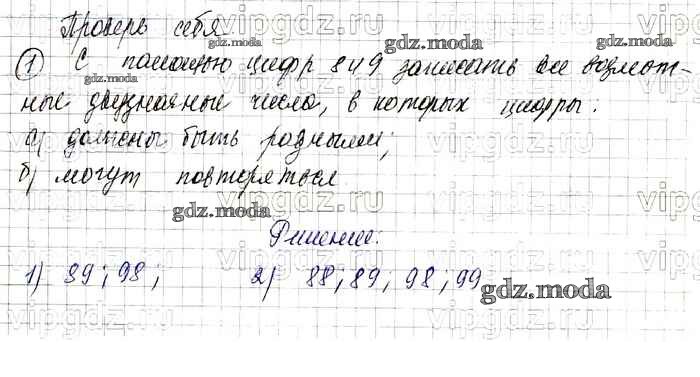 Проверь себя
① С помощью цифр 8 и 9 записать все возмож-
ные двузначные числа, в которых цифры:
а) должны быть разными;
б) могут повторяться
Решение:
1) 89; 98; 2) 88; 89, 98, 99
gdz.moda
gdz.moda
gdz.moda
gdz.moda
gdz.moda
vipgdz.ru